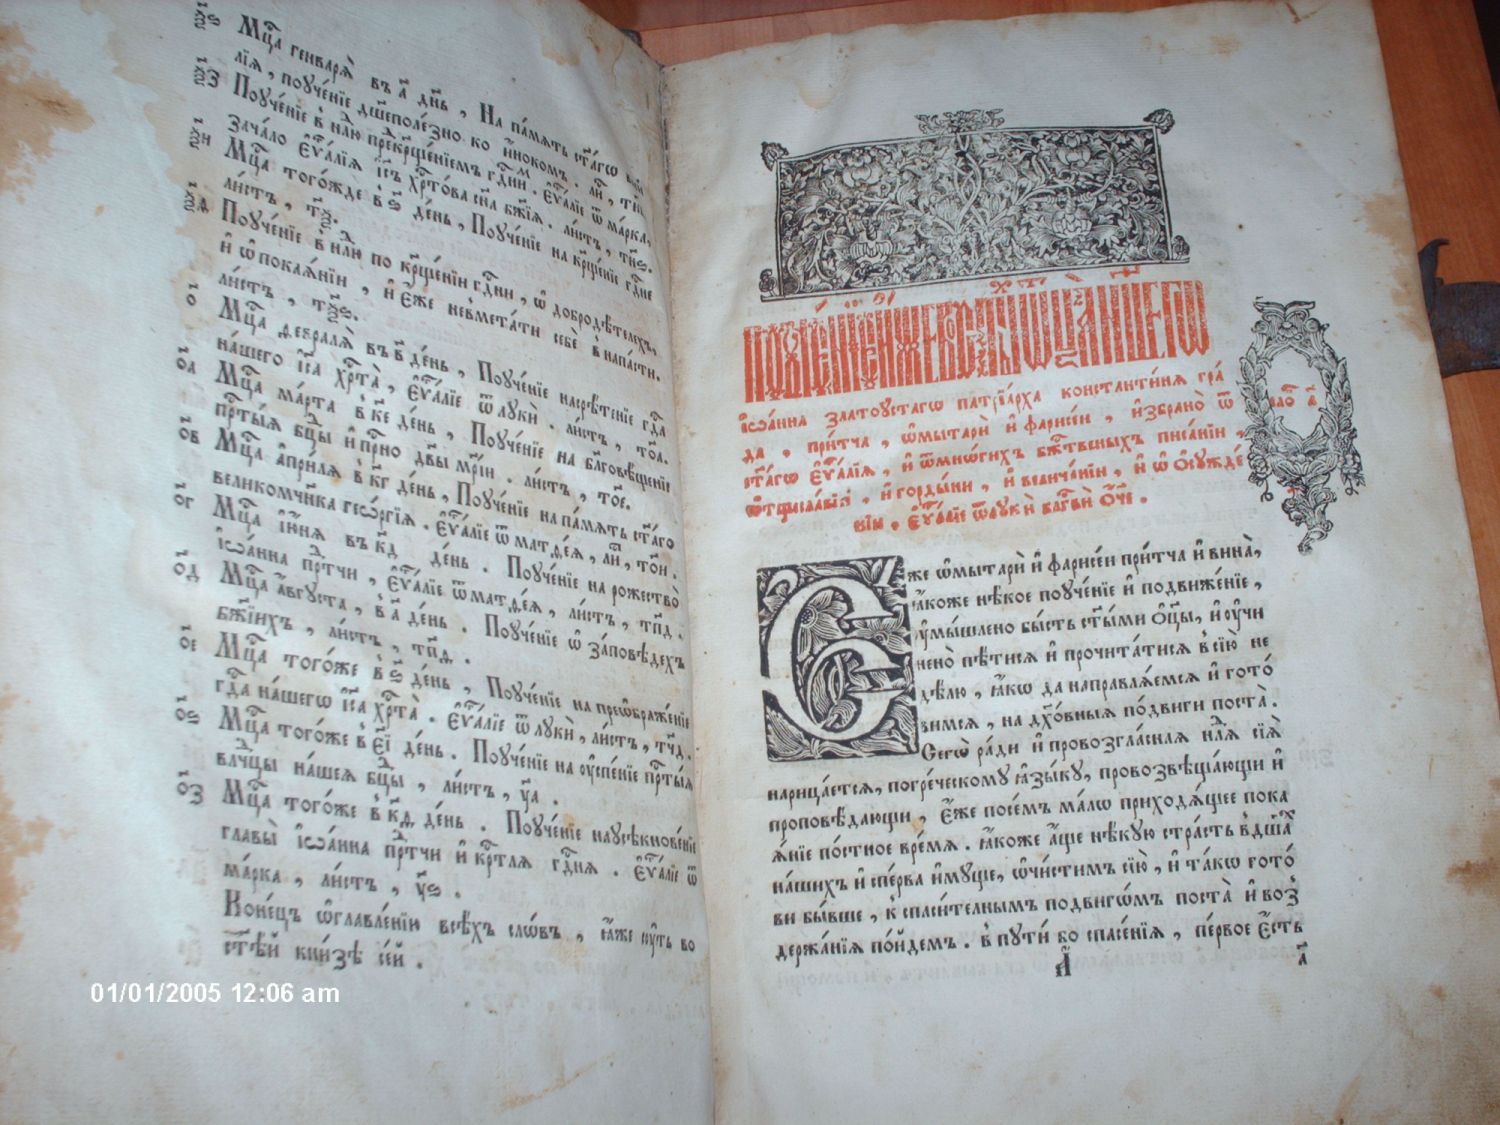 ѯ҃ѕ Мц҃а генварѧ̀ въ а҃ дн҃ь , На па́мѧть ст҃а́гѡ
лїѧ , поуче́нїе дш҃еполе́зно ко и҆́нокомъ . ли́ ,
ѯ҃з Поуче́нїе в̾ нлю пре́к̾рщ҃е́нїемъ гдн҃и . Еѵ҆а́лїе ѿ ма́рка,
зача́ло Еѵ҆а́лїѧ і҆с҃ъ хр҃то́ва сн҃а бж҃їѧ . ли́стъ ,
ѯ҃и Мц҃а того́жде в̾ ѕ҃ де́нь , Поуче́нїе на кр҃ще́нїе гдн҃е
ли́стъ ,
ѯ҃ѳ Поуче́нїе в̾ нлю по кр҃ще́нїи гдн҃и , ѡ҆ добродѣ́телехъ,
и҆ ѡ҆ покаѧ́нїи , и҆ є҆́же невмета́ти себѐ в̾ напа́сти.
ли́стъ ,
о҃ Мц҃а февра́лѧ въ в҃ де́нь , Поуче́нїе насрѣ́тенїе гд҃а
на́шего і҆с҃а хр҃та̀ , Еѵ҆а́лїе ѿ лукѝ . ли́стъ , то҃а.
о҃а Мц҃а ма́рта в̾ к҃е де́нь , Поуче́нїе на бл҃гов̾ѣще́нїе
пр҃ты́ѧ бц҃ы и҆ пр҃но дв҃ы мр҃і́и . ли́стъ , то҃е.
о҃в Мц҃а а҆при́лѧ в̾ к҃г де́нь , Поуче́нїе на па́мѧть ст҃а́го
великомч҃нка гео́ргїѧ . Еѵ҆а́лїе ѿ матѳе́ѧ , ли́ , то҃и .
о҃г Мц҃а і҆ю́нѧ въ к҃д де́нь . Поуче́нїе на рожество̀
і҆ѡа́нна пр҃тчи , Еѵ҆а́лїе ѿ матѳе́ѧ , ли́стъ , тп҃д .
о҃д Мц҃а а҆́вгуста , в̾ а҃ де́нь . Поуче́нїе ѡ҆ за́повѣдехъ
бж҃їихъ , ли́стъ , тп҃д .
о҃е Мц҃а того́же в̾ ѕ҃ де́нь , Поуче́нїе на преѡбраже́нїе
гд҃а на́шегѡ і҆с҃а хр҃та̀ . Еѵ҆а́лїе ѿ лукѝ , ли́стъ , тч҃д .
о҃ѕ Мц҃а того́же в̾ е҃і де́нь . Поуче́нїе на оу҆спе́нїе пр҃ты́ѧ
влчц҃ы на́шеѧ бц҃ы , ли́стъ , у҃а .
о҃з Мц҃а того́же в̾ к҃д де́нь . Поуче́нїе наусѣкнове́нїе
главы̀ і҆ѡа́нна пр҃тчи и҆ кр҃тлѧ гдн҃ѧ . Еѵ҆а́лїе ѿ
ма́рка , ли́стъ , у҃ѕ .
Коне́цъ ѡ҆главле́нїи всѣ́хъ сло́въ , ꙗ҆́же су́ть во
ст҃ѣ́й кни́зѣ се́й .
01/01/2005 12:06 am
і҆ѡа́нна златоу́стагѡ патрїа́рха констѧнти́нѧ гра́
да , при́тча , ѡ҆мытарѝ и҆ фарисе́и , и҆збрано̀ ѿ
ст҃а́гѡ Еѵ҆а́лїѧ , и҆ ѿмно́гихъ бж҃е́ственыхъ писа́нїи ,
ѡ҆тщесла́вїи , и҆ горды́ни , и҆ велича́нїи , и҆ ѡ҆ ѡ҆сужде́
нїи . Еѵ҆а́лїе ѿлукѝ бл҃гв҃и ѻ҆́ч҃е .
Сло́ а҃
Е҆же ѡ҆мытарѝ и҆ фарисе́и при́тча и҆ вина̀,
ꙗ҆́коже нѣ́кое поуче́нїе и҆ подвиже́нїе ,
оу҆мы́шлено бы́сть ст҃ы́ми ѻ҆ц҃ы̀, и҆ оу҆чи
нено̀ пѣ́тисѧ и҆ прочита́тисѧ в̾ сїю̀ не
дѣ́лю , ꙗ҆́кѡ да направлѧ́емсѧ и҆ гото́
вимсѧ , на дх҃о́вныѧ по́двиги поста̀ .
Сегѡ̀ ра́ди и҆ провозгла́снаѧ нл҃ѧ сїѧ̀
нарица́етсѧ, погре́ческому ꙗ҆зы́ку, провозвѣща́ющи и҆
проповѣ́дающи , є҆́же посе́мъ ма́лѡ приходѧ́щее пока
ѧ́нїе по́стное вре́мѧ . ꙗ҆́коже а҆́ще нѣ́кую стра́сть в̾ дш҃а́х
на́шихъ и҆ спе́рва и҆му́ще, ѡ҆чи́стимъ сїю̀ , и҆ та́кѡ гото́
ви бы́вше , к̾ спаси́телнымъ подвигѡ́мъ поста̀ и҆ воз̾
держа́нїѧ по́йдемъ . в̾ пути́ бо спасе́нїѧ , пе́рвое є҆́сть
а҃ а҃